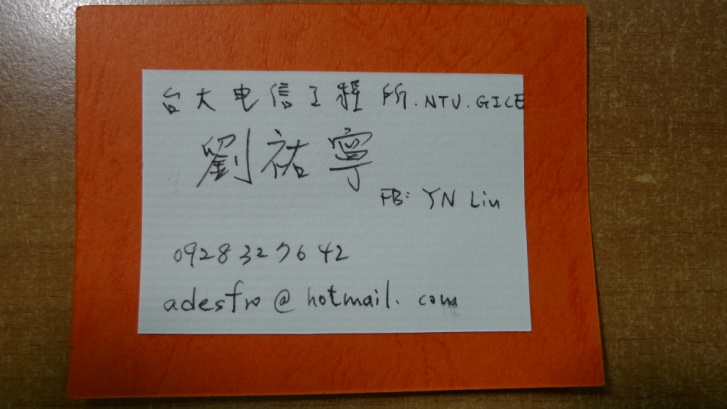 台大电信工程所.NTU.GICE
劉祐寧
FB: YN Liu
0928327642
adesfro@hotmail.com